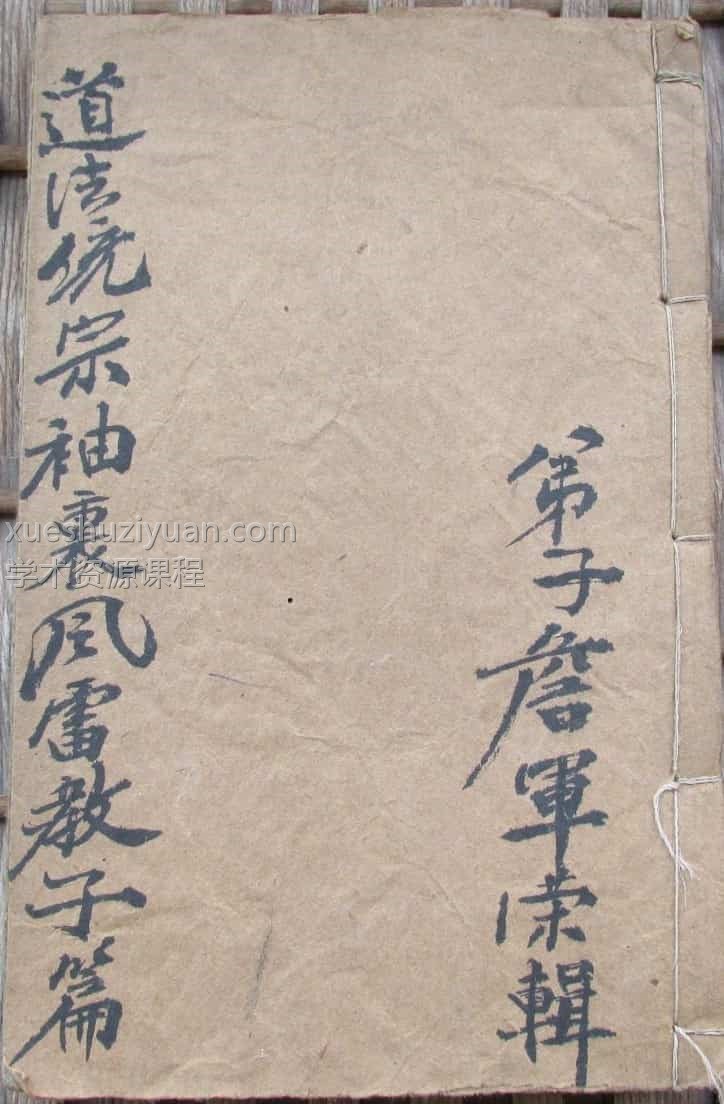 道法統宗袖裏風雷教子篇
弟子詹軍荣輯
xueshuziyuan.com
学术资源课程